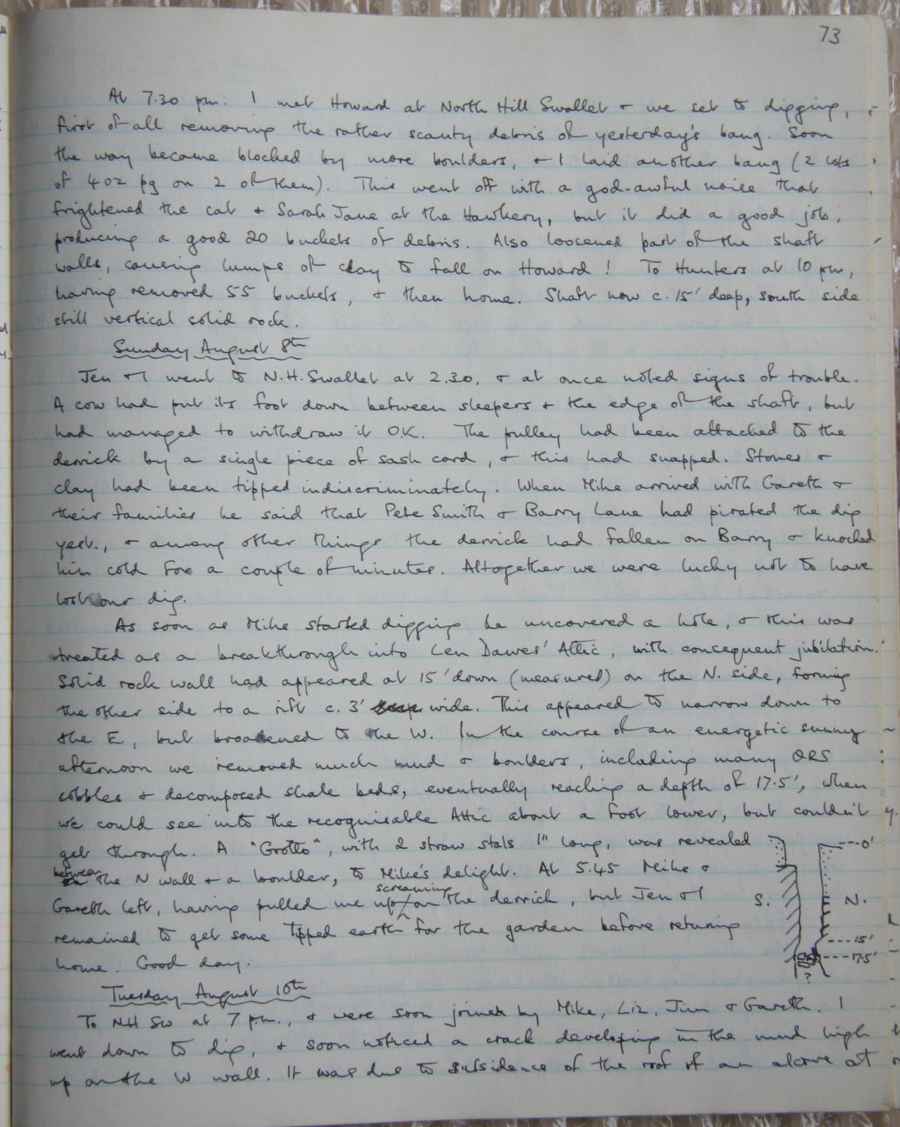 73
At 7.30 pm. I met Howard at North Hill Swallet + we set to digging,
first of all removing the rather scanty debris of yesterday's bang. Soon
the way became blocked by more boulders, + I laid another bang (2 lots
of 4oz pg on 2 of them). This went off with a god-awful noise that
frightened the cat + Sarah Jane at the Hawkery, but it did a good job,
producing a good 20 buckets of debris. Also loosened part of the shaft
walls, causing lumps of clay to fall on Howard! To Hunters at 10 pm,
having removed 55 buckets, + then home. Shaft now c. 15' deep, south side
still vertical solid rock.
Sunday August 8th
Jen + I went to N.H. Swallet at 2.30, + at once noted signs of trouble.
A cow had put its foot down between sleepers + the edge of the shaft, but
had managed to withdraw it OK. The pulley had been attached to the
derrick by a single piece of sash cord, + this had snapped. Stones +
clay had been tipped indiscriminately. When Mike arrived with Gareth +
their families he said that Pete Smith + Barry Lane had pirated the dig
yest., + among other things the derrick had fallen on Barry + knocked
him cold for a couple of minutes. Altogether we were lucky not to have
lost our dig.
As soon as Mike started digging he uncovered a hole, + this was
treated as a breakthrough into Len Dawes' Attic, with consequent jubilation.
Solid rock wall had appeared at 15' down (measured) on the N. side, forming
the other side to a rift c. 3' wide. This appeared to narrow down to
the E, but broadened to the W. In the course of an energetic sunny
afternoon we removed much mud + boulders, including many ORS
cobbles + decomposed shale beds, eventually reaching a depth of 17.5', when
we could see into the recognisable Attic about a foot lower, but couldn't
get through. A "Grotto", with 2 straw stals 1" long, was revealed
between the N wall + a boulder, to Mike's delight. At 5.45 Mike +
Gareth left, having pulled me up screaming on the derrick, but Jen + I
remained to get some tipped earth for the garden before returning
home. Good day.
0'
S. N.
15'
17.5'
?
Tuesday August 10th
To NH Sw at 7 pm., + were soon joined by Mike, Liz, Jim + Gareth. I
went down to dig, + soon noticed a crack developing in the mud high
up on the W wall. It was due to subsidence of the roof of an alcove at